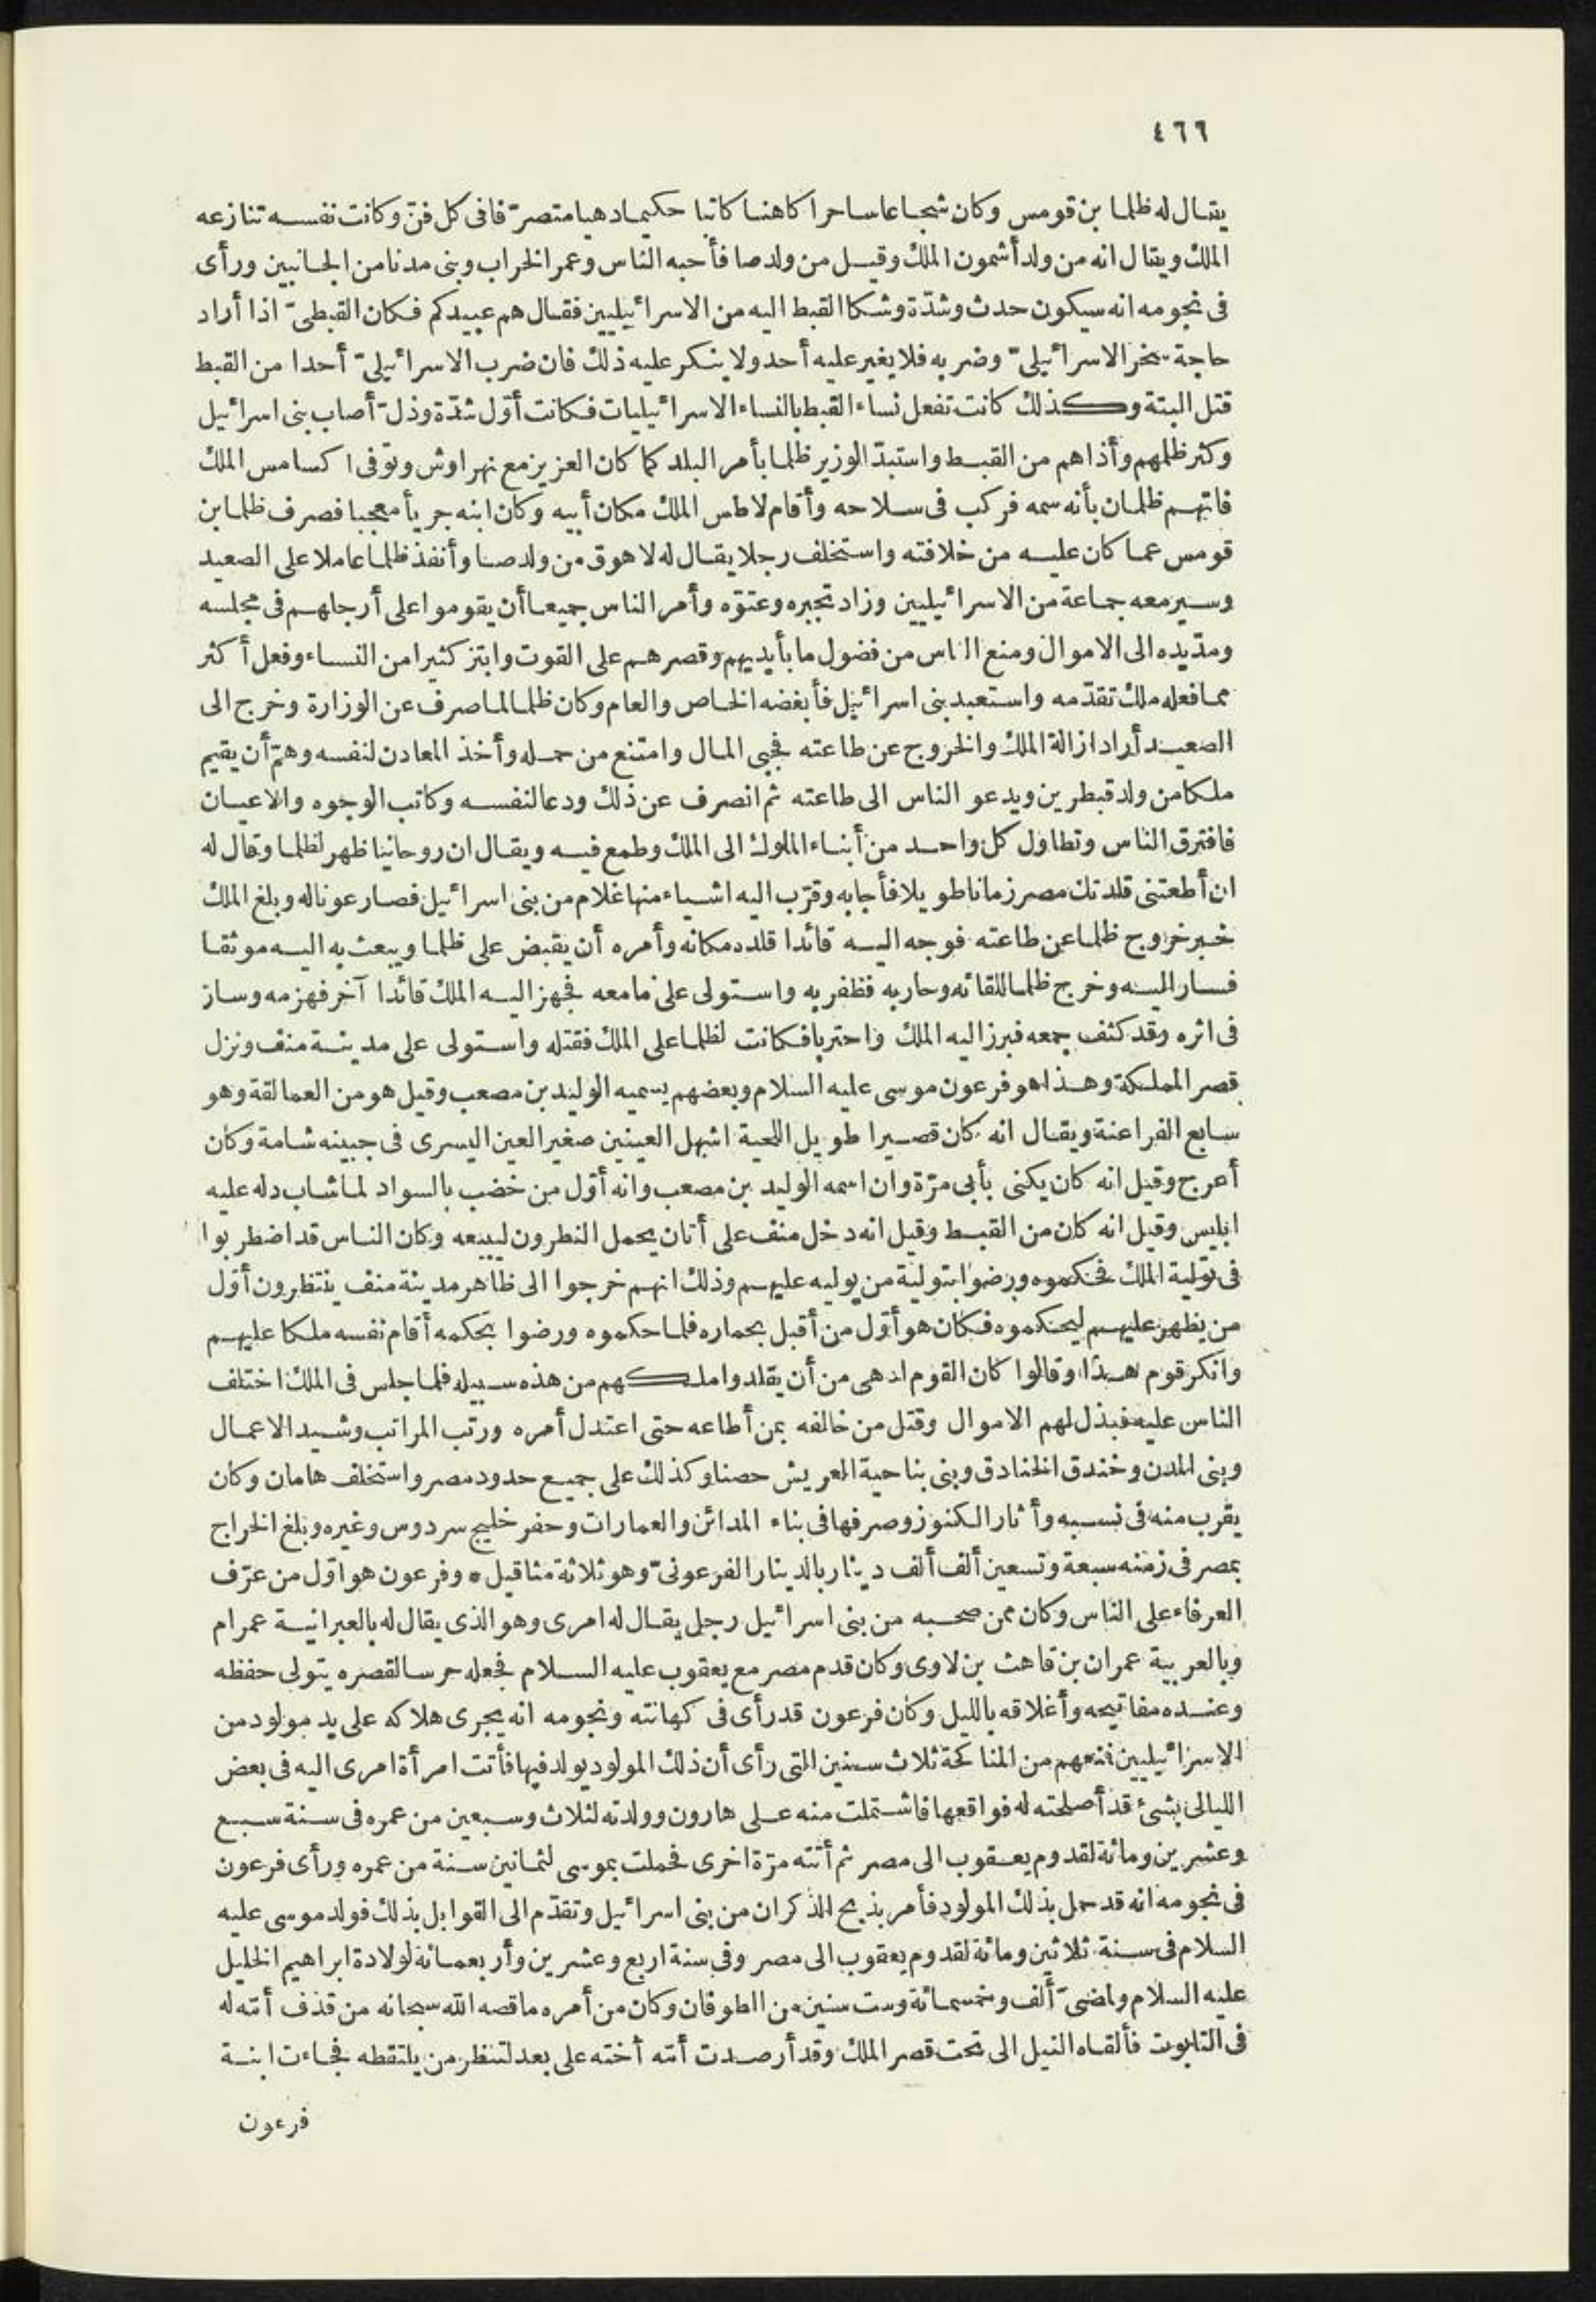 ٤٦٦
يقال له ظلما بن قومس وكان شجاعا ساحرا كاهنا كاتبا حكيما دهيا متصرّفا فى كل فنّ وكانت نفسه تنازعه
الملك ويقال انه من ولد أشمون الملك وقيل من ولد صا فأحبه الناس وعمر الخراب وبنى مدنا من الجانبين ورأى
فى نجومه انه سيكون حدث وشدّة وشكا القبط اليه من الاسرائيليين فقال هم عبيدكم فكان القبطىّ اذا أراد
حاجة سخر الاسرائيلىّ وضربه فلا يغير عليه أحد ولا ينكر عليه ذلك فان ضرب الاسرائيلىّ أحدا من القبط
قتل البتة وكذلك كانت تفعل نساء القبط بالنساء الاسرائيليات فكانت أوّل شدّة وذلّ أصاب بنى اسرائيل
وكثر ظلمهم وأذاهم من القبط واستبدّ الوزير ظلما بأمر البلد كما كان العزيز مع نهراوش وتوفى اكسامس الملك
فاتهم ظلمان بأنه سمه فركب فى سلاحه وأقام لاطس الملك مكان أبيه وكان ابنه جريأ معجبا فصرف ظلما بن
قومس عما كان عليه من خلافته واستخلف رجلا يقال له لاهوق من ولد صا وأنفذ ظلما عاملا على الصعيد
وسير معه جماعة من الاسرائيليين وزاد تجبره وعتوّه وأمر الناس جميعا أن يقوموا على أرجلهم فى مجلسه
ومدّ يده الى الاموال ومنع الناس من فضول ما بأيديهم وقصرهم على القوت وابتز كثيرا من النساء وفعل أكثر
مما فعله ملك تقدّمه واستعبد بنى اسرائيل فأبغضه الخاص والعام وكان ظلما لما صرف عن الوزارة وخرج الى
الصعيد أراد ازالة الملك والخروج عن طاعته فجبى المال وامتنع من حمله وأخذ المعادن لنفسه وهمّ أن يقيم
ملكا من ولد قبطرين ويدعو الناس الى طاعته ثم انصرف عن ذلك ودعا لنفسه وكاتب الوجوه والاعيان
فافترق الناس وتطاول كل واحد من أبناء الملوك الى الملك وطمع فيه ويقال ان روحانيا ظهر لظلما وقال له
ان أطعتنى قلدتك مصر زمانا طويلا فأجابه وقرّب اليه اشياء منها غلام من بنى اسرائيل فصار عونا له وبلغ الملك
خبر خروج ظلما عن طاعته فوجه اليه قائدا قلده مكانه وأمره أن يقبض على ظلما ويبعث به اليه موثقا
فسار اليه وخرج ظلما للقائه وحاربه فظفر به واستولى على ما معه فجهز اليه الملك قائدا آخر فهزمه وسار
فى اثره وقد كثف جمعه فبرز اليه الملك واحتربا فكانت لظلما على الملك فقتله واستولى على مدينة منف ونزل
قصر المملكة وهذا هو فرعون موسى عليه السلام وبعضهم يسميه الوليد بن مصعب وقيل هو من العمالقة وهو
سابع الفراعنة ويقال انه كان قصيرا طويل اللحية اشهل العينين صغير العين اليسرى فى جبينه شامة وكان
أعرج وقيل انه كان يكنى بأبى مرّة وان اسمه الوليد بن مصعب وانه أوّل من خضب بالسواد لما شاب دله عليه
ابليس وقيل انه كان من القبط وقيل انه دخل منف على أتان يحمل النطرون ليبيعه وكان الناس قد اضطربوا
فى تولية الملك فحكموه ورضوا بتولية من يوليه عليهم وذلك انهم خرجوا الى ظاهر مدينة منف ينتظرون أوّل
من يظهر عليهم ليحكموه فكان هو أوّل من أقبل بحماره فلما حكموه ورضوا بحكمه أقام نفسه ملكا عليهم
وانكر قوم هذا وقالوا كان القوم ادهى من أن يقلدوا ملكهم من هذه سبيله فلما جلس فى الملك اختلف
الناس عليه فبذل لهم الاموال وقتل من خالفه بمن أطاعه حتى اعتدل أمره ورتب المراتب وشيد الاعمال
وبنى المدن وخندق الخنادق وبنى بناحية العريش حصنا وكذلك على جميع حدود مصر واستخلف هامان وكان
يقرب منه فى نسبه وأثار الكنوز وصرفها فى بناء المدائن والعمارات وحفر خليج سردوس وغيره وبلغ الخراج
بمصر فى زمنه سبعة وتسعين ألف ألف دينار بالدينار الفرعونىّ وهو ثلاثة مثاقيل * وفرعون هو اوّل من عرّف
العرفاء على الناس وكان ممن صحبه من بنى اسرائيل رجل يقال له امرى وهو الذى يقال له بالعبرانية عمرام
وبالعربية عمران بن قاهث بن لاوى وكان قدم مصر مع يعقوب عليه السلام فجعله حرسا لقصره يتولى حفظه
وعنده مفاتيحه وأغلاقه بالليل وكان فرعون قد رأى فى كهانته ونجومه انه يجرى هلاكه على يد مولود من
الاسرائيليين فمنعهم من المناكحة ثلاث سنين التى رأى أن ذلك المولود يولد فيها فأتت امرأة امرى اليه فى بعض
الليالى بشئ قد أصلحته له فواقعها فاشتملت منه على هارون وولدته لثلاث وسبعين من عمره فى سنة سبع
وعشرين ومائة لقدوم يعقوب الى مصر ثم أتته مرّة اخرى فحملت بموسى لثمانين سنة من عمره ورأى فرعون
فى نجومه انه قد حمل بذلك المولود فأمر بذبح الذكران من بنى اسرائيل وتقدّم الى القوابل بذلك فولد موسى عليه
السلام فى سنة ثلاثين ومائة لقدوم يعقوب الى مصر وفى سنة اربع وعشرين وأربعمائة لولادة ابراهيم الخليل
عليه السلام ولمضىّ ألف وخمسمائة وست سنين من الطوفان وكان من أمره ما قصه الله سبحانه من قذف أمّه له
فى التابوت فألقاه النيل الى تحت قصر الملك وقد أرصدت أمّه أخته على بعد لتنظر من يلتقطه فجاءت ابنة
فرعون